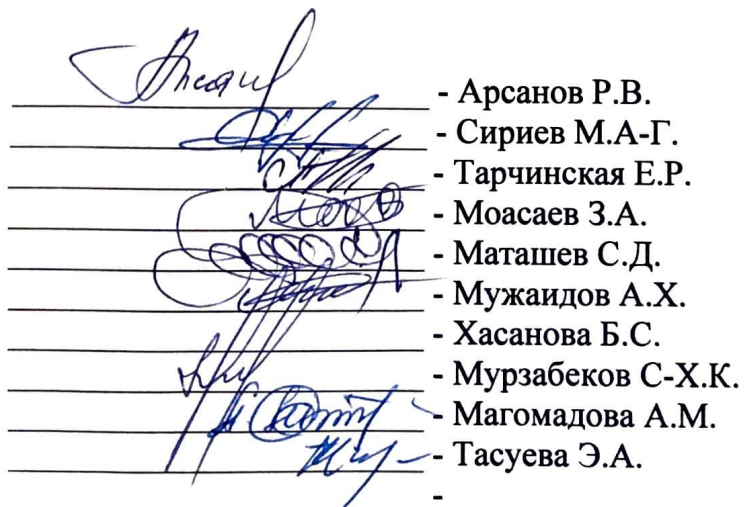 - Арсанов Р.В.
- Сириев М.А-Г.
- Тарчинская Е.Р.
- Моасаев З.А.
- Маташев С.Д.
- Мужаидов А.Х.
- Хасанова Б.С.
- Мурзабеков С-Х.К.
- Магомадова А.М.
- Тасуева Э.А.
-